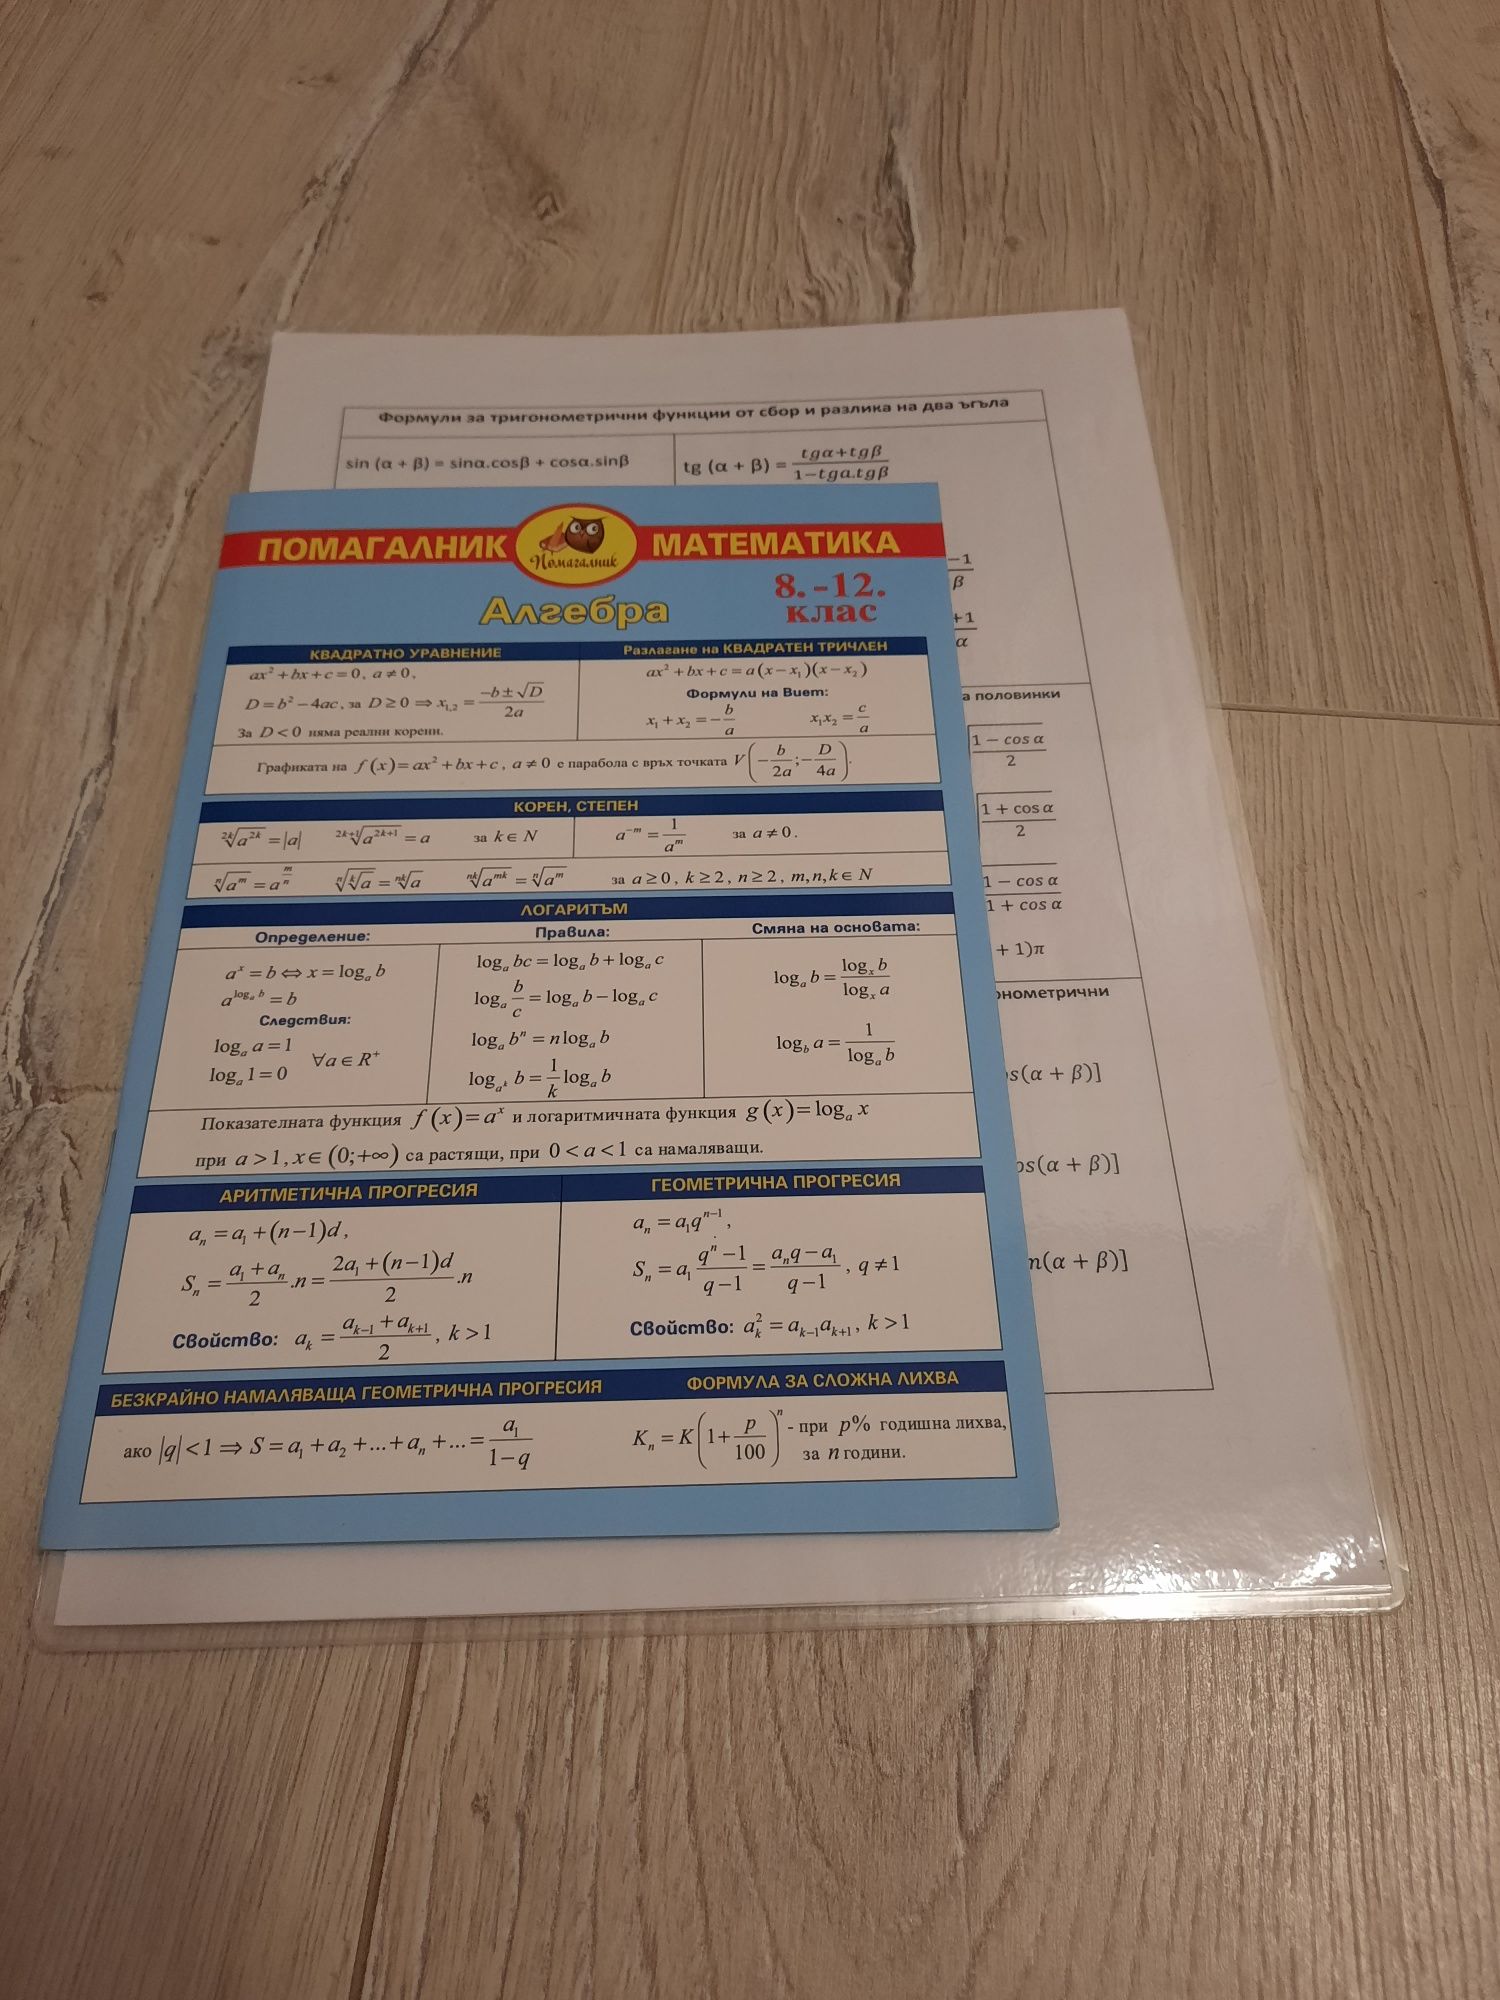 Формули за тригонометрични функции от сбор и разлика на два ъгъла
sin (α + β) = sinα.cosβ + cosα.sinβ
tg (α + β) = (tgα+tgβ)/(1−tgα.tgβ)
−1
β
+1
α
а половинки
1 − cos α
2
1 + cos α
2
1 − cos α
1 + cos α
+ 1)π
онометрични
os(α + β)]
os(α + β)]
n(α + β)]
ПОМАГАЛНИК Помагалник МАТЕМАТИКА
Алгебра
8.-12.
клас
КВАДРАТНО УРАВНЕНИЕ
ax² + bx + c = 0, a ≠ 0,
D = b² − 4ac, за D ≥ 0 ⇒ x₁,₂ = (−b ± √D)/2a
За D < 0 няма реални корени.
Разлагане на КВАДРАТЕН ТРИЧЛЕН
ax² + bx + c = a(x − x₁)(x − x₂)
Формули на Виет:
x₁ + x₂ = −b/a x₁x₂ = c/a
Графиката на f(x) = ax² + bx + c, a ≠ 0 е парабола с връх точката V(−b/2a; −D/4a).
КОРЕН, СТЕПЕН
²ᵏ√a²ᵏ = |a| ²ᵏ⁺¹√a²ᵏ⁺¹ = a за k ∈ N a⁻ᵐ = 1/aᵐ за a ≠ 0.
ⁿ√aᵐ = a^(m/n) ⁿ√ᵏ√a = ⁿᵏ√a ⁿᵏ√aᵐᵏ = ⁿ√aᵐ за a ≥ 0, k ≥ 2, n ≥ 2, m,n,k ∈ N
ЛОГАРИТЪМ
Определение:
aˣ = b ⇔ x = logₐ b
a^(logₐ b) = b
Следствия:
logₐ a = 1
logₐ 1 = 0
∀a ∈ R⁺
Правила:
logₐ bc = logₐ b + logₐ c
logₐ b/c = logₐ b − logₐ c
logₐ bⁿ = n logₐ b
log_(aᵏ) b = 1/k logₐ b
Смяна на основата:
logₐ b = logₓ b / logₓ a
log_b a = 1 / logₐ b
Показателната функция f(x) = aˣ и логаритмичната функция g(x) = logₐ x
при a > 1, x ∈ (0;+∞) са растящи, при 0 < a < 1 са намаляващи.
АРИТМЕТИЧНА ПРОГРЕСИЯ
aₙ = a₁ + (n−1)d,
Sₙ = (a₁ + aₙ)/2 .n = (2a₁ + (n−1)d)/2 .n
Свойство: aₖ = (aₖ₋₁ + aₖ₊₁)/2, k > 1
ГЕОМЕТРИЧНА ПРОГРЕСИЯ
aₙ = a₁qⁿ⁻¹,
Sₙ = a₁ (qⁿ − 1)/(q − 1) = (aₙq − a₁)/(q − 1), q ≠ 1
Свойство: aₖ² = aₖ₋₁aₖ₊₁, k > 1
БЕЗКРАЙНО НАМАЛЯВАЩА ГЕОМЕТРИЧНА ПРОГРЕСИЯ
ако |q| < 1 ⇒ S = a₁ + a₂ + ... + aₙ + ... = a₁/(1−q)
ФОРМУЛА ЗА СЛОЖНА ЛИХВА
Kₙ = K(1 + p/100)ⁿ - при p% годишна лихва,
за n години.